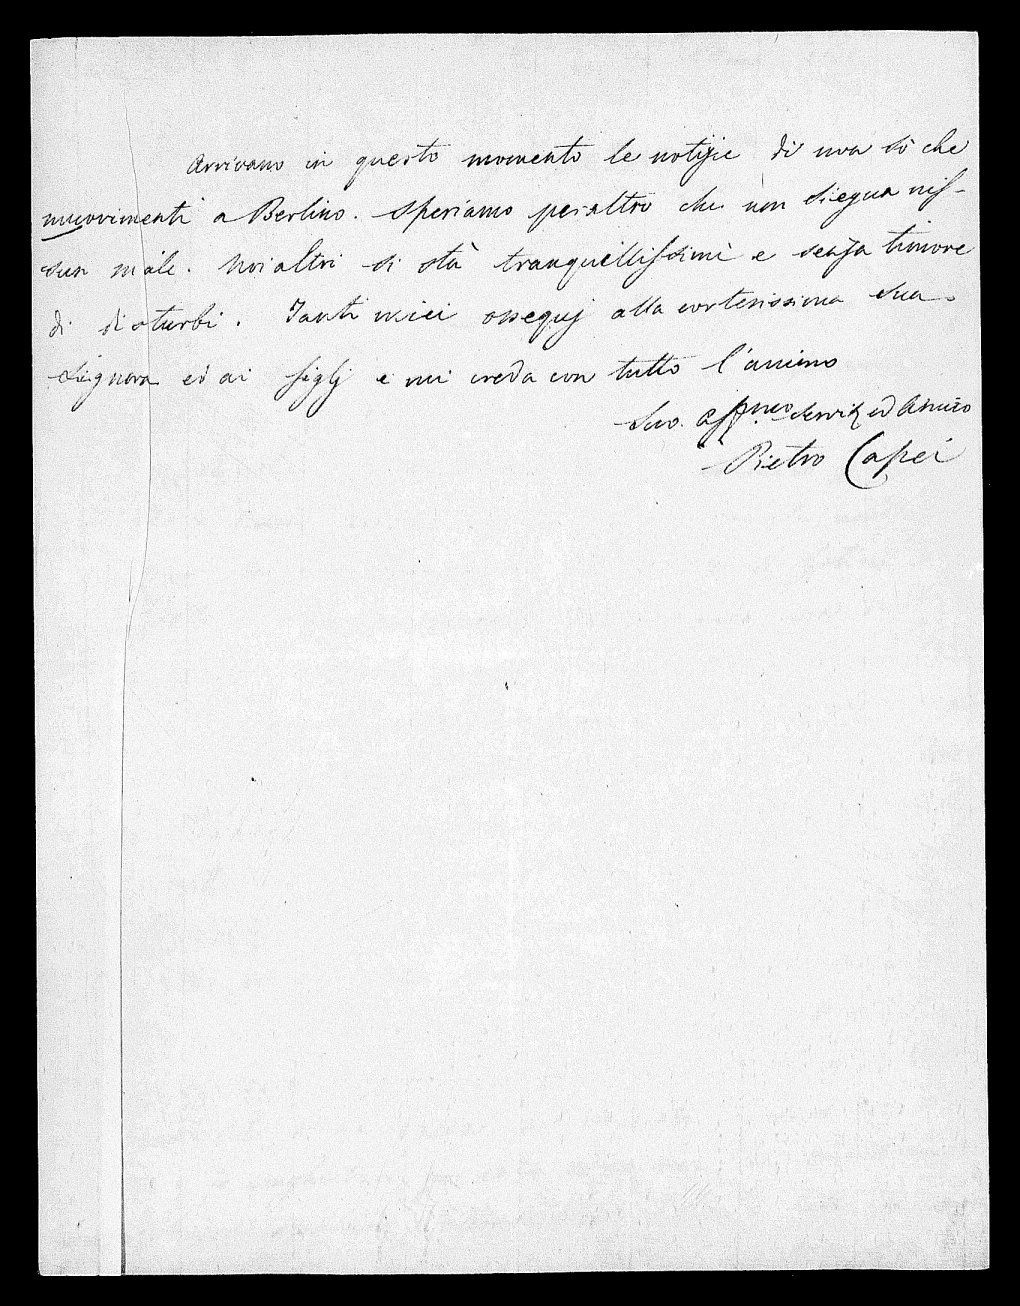 Arrivano in questo momento le notizie di non sò che
muovimenti a Berlino. Speriamo peraltro che non siegua nis-
sun male. Noi altri si stà tranquillissimi e senza timore
di disturbi. Tanti miei ossequj alla cortesissima sua
Signora ed ai figlj e mi creda con tutto l'animo
Suo affmo servit ed Amico
Pietro Capei